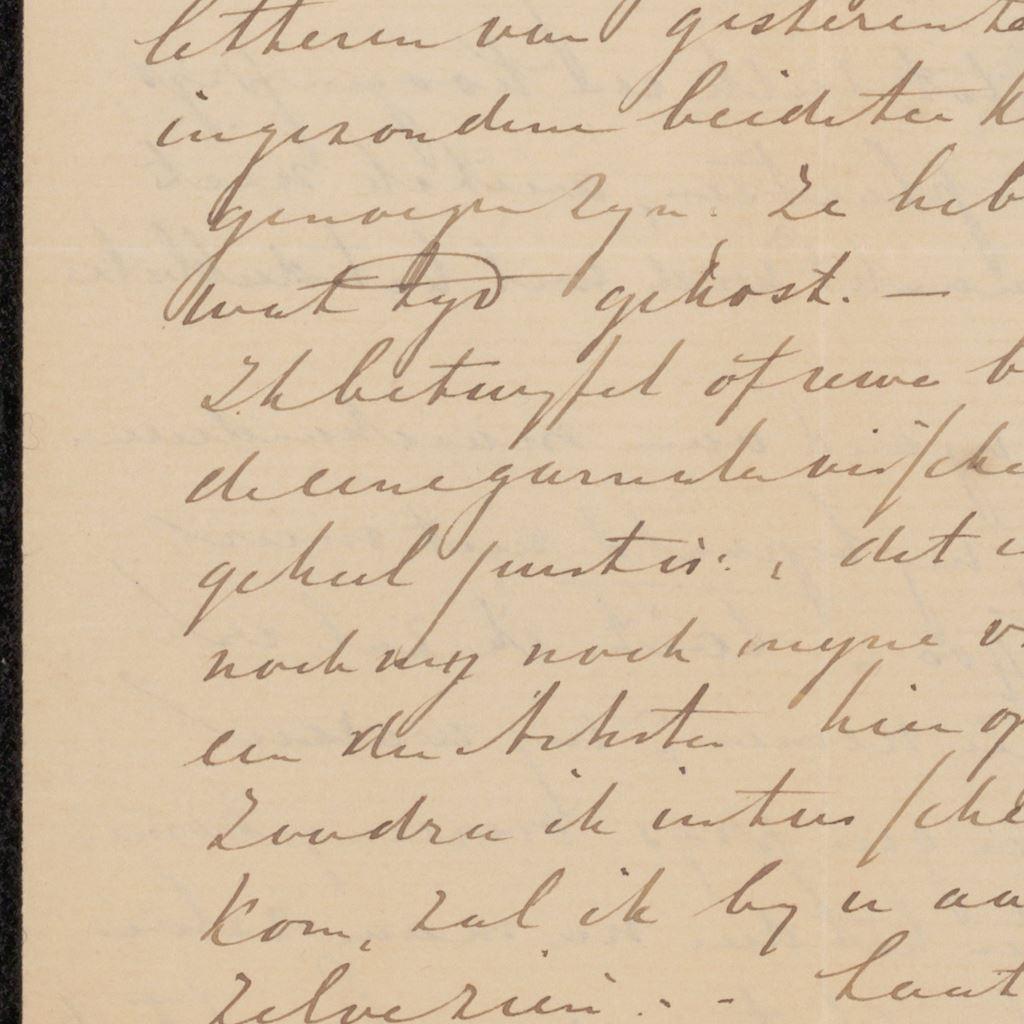 letteren van gisteren
ingezondene
genoegen zyn. Ze heb
wat tyd gekost. —
Ik betwyfel of uwe b
de eene garnalevissche
geheel juist is:, dat
noch my noch myne v
een der hier op
Zoodra ik intussche
kom, zal ik by u aa
zelve zien. - Laat